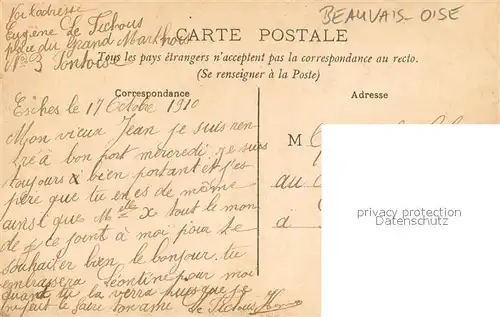 BEAUVAIS - OISE
Voici adresse
Eugène Le Tichous
place du Grand Marthroi
N° 3 Pontoise
CARTE POSTALE
Tous les pays étrangers n'acceptent pas la correspondance au recto.
(Se renseigner à la Poste)
Correspondance
Adresse
Esches le 17 Octobre 1910
Mon vieux Jean je suis ren-
tré à bon port mercredi je suis
toujours bien portant et j'es
père que tu en es de même
ainsi que Melle X tout le mon
de se joint à moi pour te
souhaiter bien le bonjour. tu
embrassera Léontine pour moi
quand tu la verra puisque je
ne peut le faire ton ami
M
au
à
privacy protection
Datenschutz